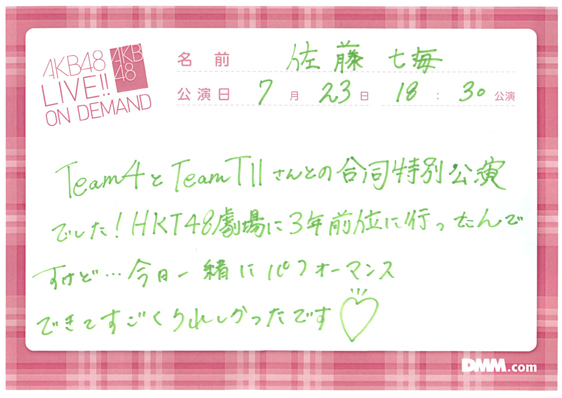 AKB48
LIVE!!
ON DEMAND
AKB
48
名前 佐藤七海
公演日 7月23日 18:30公演
Team4とTeamTIIさんとの合同特別公演
でした!HKT48劇場に3年前位に行ったんで
すけど…今日一緒にパフォーマンス
できてすごくうれしかったです♡
DMM.com